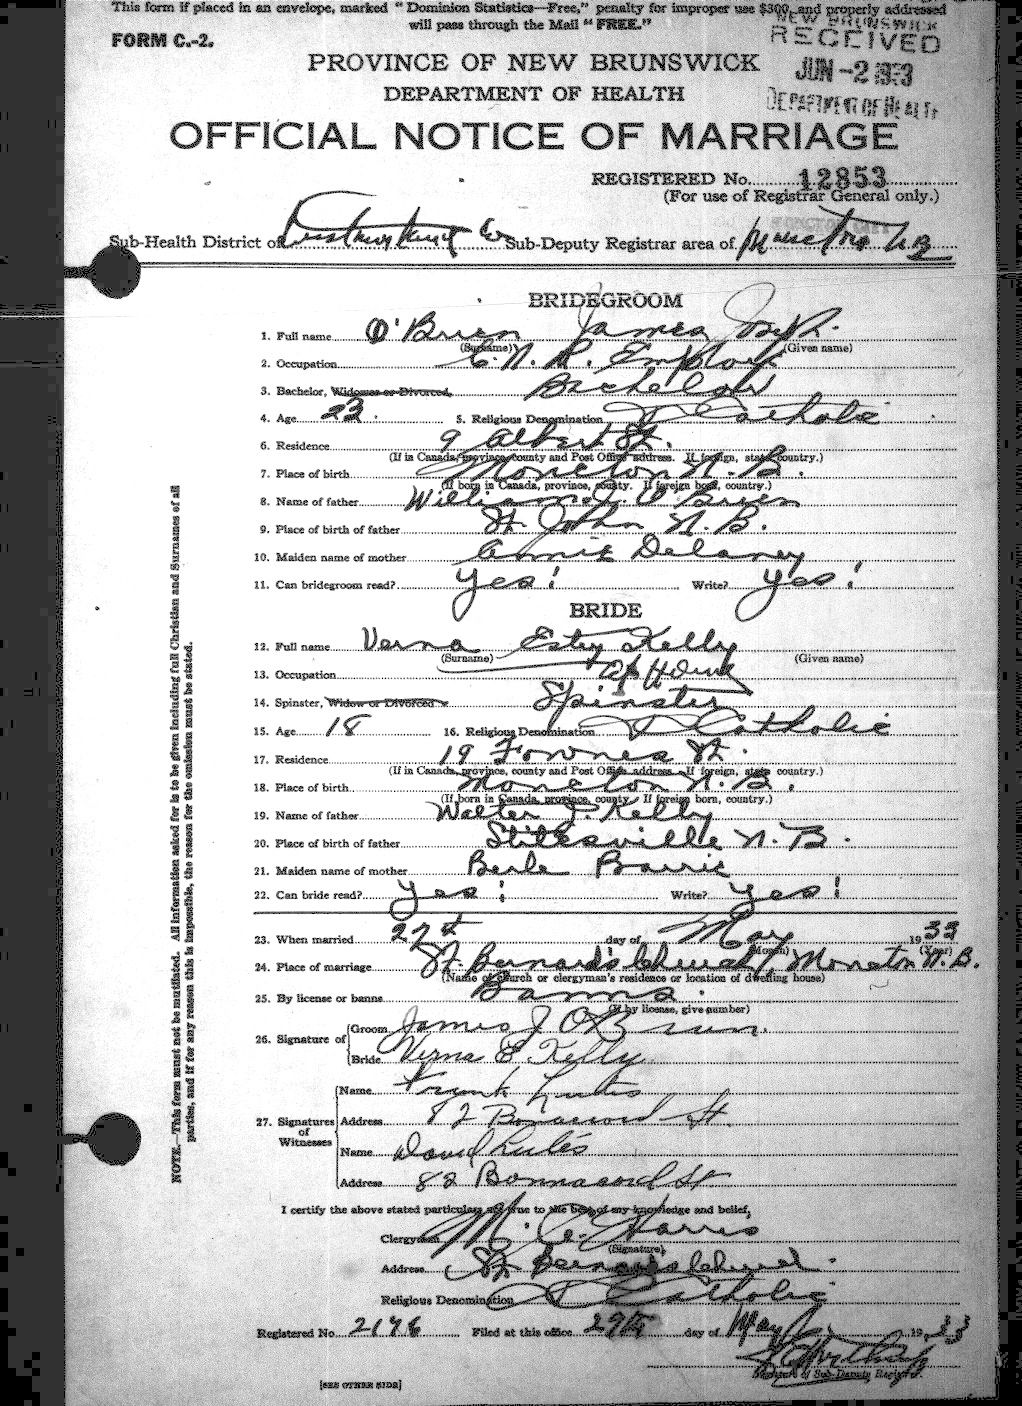 This form if placed in an envelope, marked "Dominion Statistics—Free," penalty for improper use $300, and properly addressed
will pass through the Mail "FREE."
FORM C.-2.
NEW BRUNSWICK
RECEIVED
JUN -2 1933
DEPARTMENT OF HEALTH
PROVINCE OF NEW BRUNSWICK
DEPARTMENT OF HEALTH
OFFICIAL NOTICE OF MARRIAGE
REGISTERED No. 12853
(For use of Registrar General only.)
Sub-Health District of Sub-Deputy Registrar area of Moncton NB
BRIDEGROOM
1. Full name O'Brien James Joseph
(Surname) (Given name)
2. Occupation C.N.R. Employ
3. Bachelor, Widower or Divorced, Bachelor
4. Age 23 5. Religious Denomination R Catholic
6. Residence 9 Albert St.
(If in Canada, province, county and Post Office address. If foreign, state country.)
7. Place of birth Moncton N.B.
(If born in Canada, province, county. If foreign born, country.)
8. Name of father William J. O'Brien
9. Place of birth of father St. John N.B.
10. Maiden name of mother Annie Delaney
11. Can bridegroom read? Yes! Write? Yes!
BRIDE
12. Full name Verna Estey Kelly
(Surname) (Given name)
13. Occupation At Home
14. Spinster, Widow or Divorced Spinster
15. Age 18 16. Religious Denomination R Catholic
17. Residence 19 Fownes St.
(If in Canada, province, county and Post Office address. If foreign, state country.)
18. Place of birth Moncton N.B.
(If born in Canada, province, county. If foreign born, country.)
19. Name of father Walter F. Kelly
20. Place of birth of father Stilesville N.B.
21. Maiden name of mother Berle Barrie
22. Can bride read? Yes! Write? Yes!
23. When married 27th day of May 1933
(Month) (Year)
24. Place of marriage St. Bernard's Church, Moncton N.B.
(Name of church or clergyman's residence or location of dwelling house)
25. By license or banns Banns.
(If by license, give number)
26. Signature of
Groom James J O'Brien.
Bride Verna E. Kelly
27. Signatures of Witnesses
Name Frank Lutes
Address 82 Bonaccord St.
Name David Lutes
Address 82 Bonnacord St
I certify the above stated particulars are true to the best of my knowledge and belief,
Clergyman Harris
(Signature)
Address St Bernard's Church.
Religious Denomination R Catholic
Registered No. 2176 Filed at this office 29th day of May 1933
Signature of Sub-Deputy Registrar.
[SEE OTHER SIDE]
NOTE.—This form must not be mutilated. All information asked for is to be given including full Christian and Surnames of all
parties, and if for any reason this is impossible, the reason for the omission must be stated.